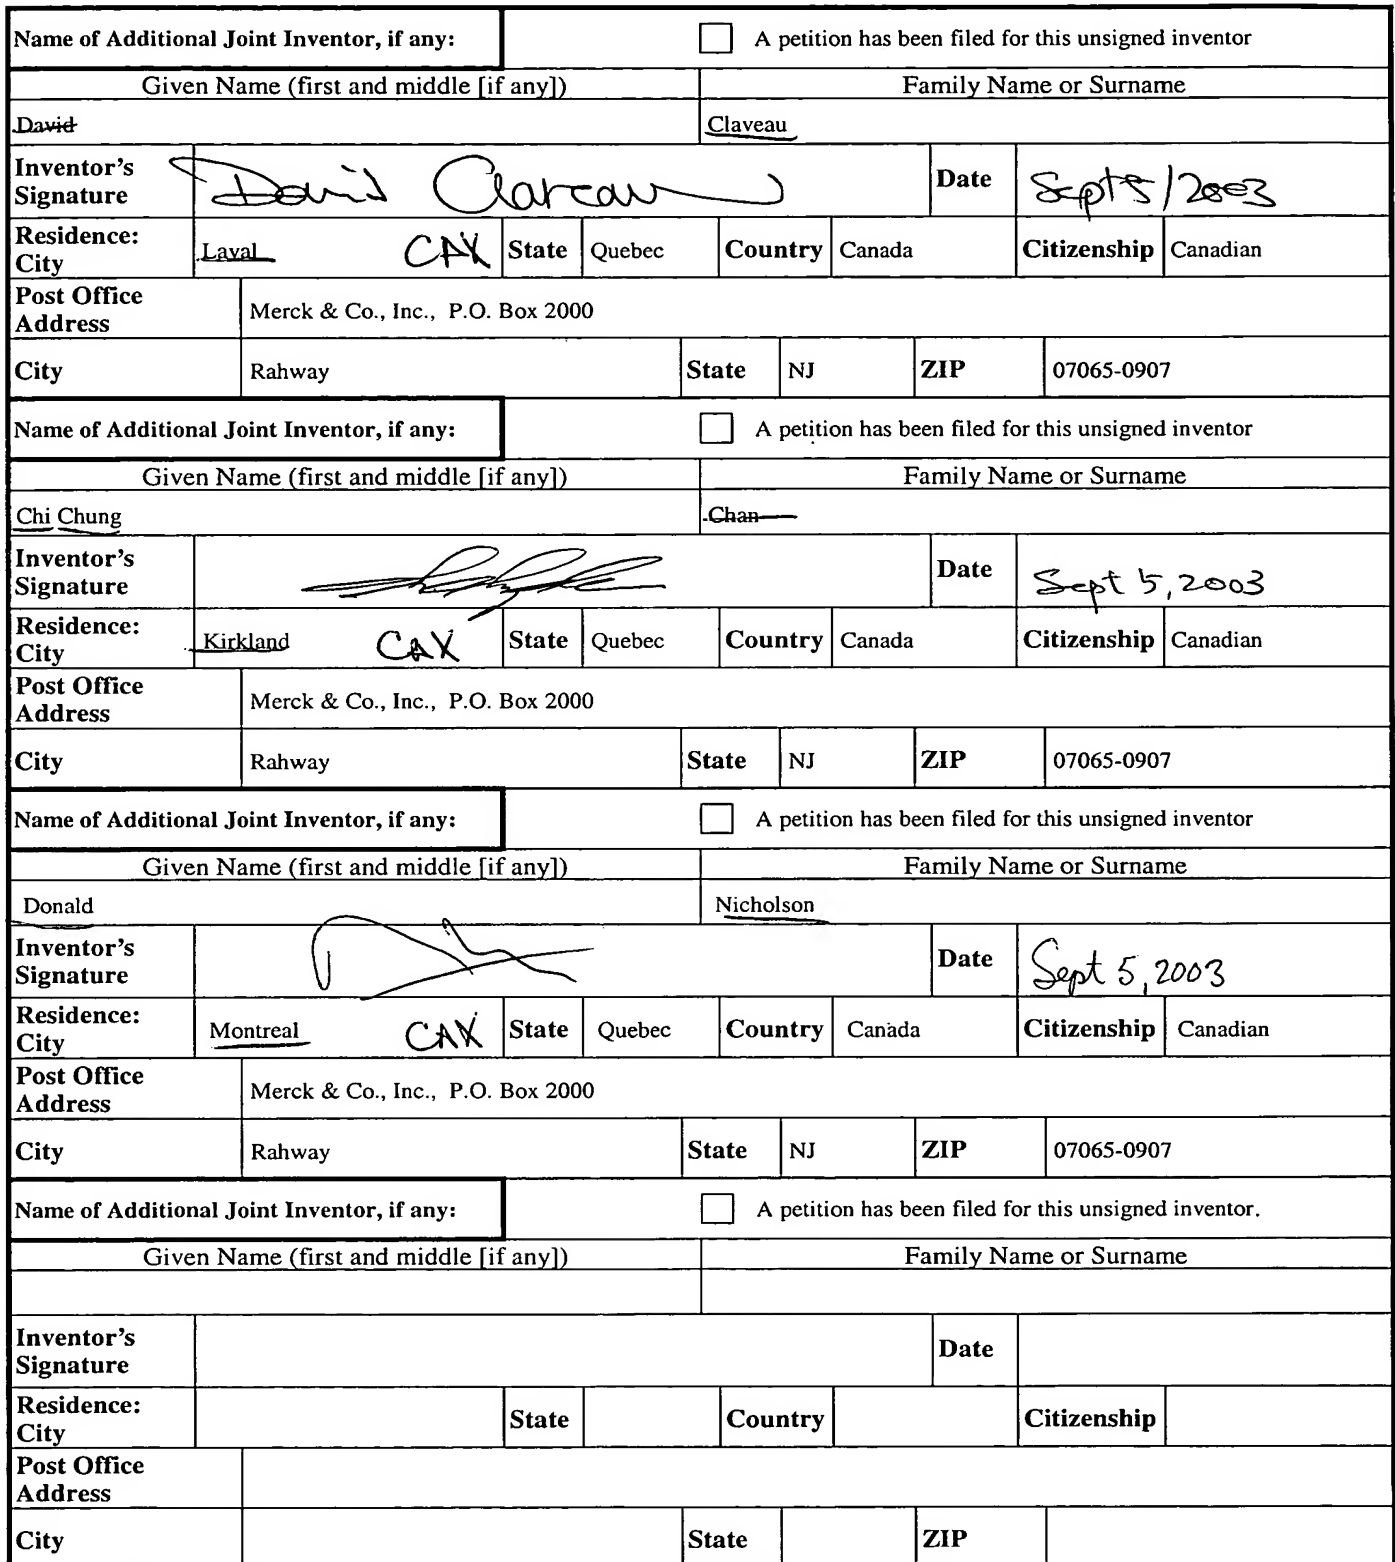 Name of Additional Joint Inventor, if any: A petition has been filed for this unsigned inventor
Given Name (first and middle [if any]) Family Name or Surname
David Claveau
Inventor's Signature David Claveau Date Sept 5/2003
Residence: City Laval CAX State Quebec Country Canada Citizenship Canadian
Post Office Address Merck & Co., Inc., P.O. Box 2000
City Rahway State NJ ZIP 07065-0907
Name of Additional Joint Inventor, if any: A petition has been filed for this unsigned inventor
Given Name (first and middle [if any]) Family Name or Surname
Chi Chung Chan
Inventor's Signature Date Sept 5, 2003
Residence: City Kirkland CAX State Quebec Country Canada Citizenship Canadian
Post Office Address Merck & Co., Inc., P.O. Box 2000
City Rahway State NJ ZIP 07065-0907
Name of Additional Joint Inventor, if any: A petition has been filed for this unsigned inventor
Given Name (first and middle [if any]) Family Name or Surname
Donald Nicholson
Inventor's Signature Date Sept 5, 2003
Residence: City Montreal CAX State Quebec Country Canada Citizenship Canadian
Post Office Address Merck & Co., Inc., P.O. Box 2000
City Rahway State NJ ZIP 07065-0907
Name of Additional Joint Inventor, if any: A petition has been filed for this unsigned inventor.
Given Name (first and middle [if any]) Family Name or Surname
Inventor's Signature Date
Residence: City State Country Citizenship
Post Office Address
City State ZIP